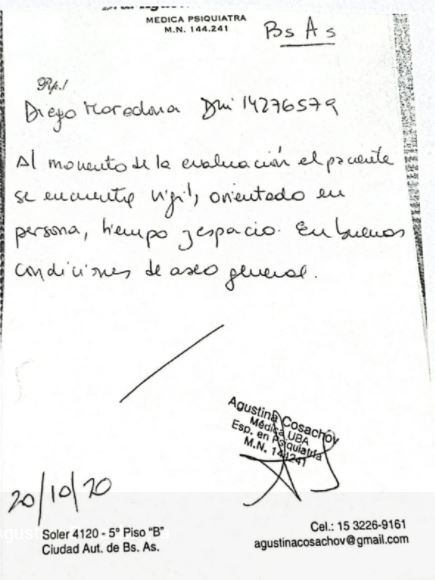 MEDICA PSIQUIATRA
M.N. 144.241
Bs As
Rp./
Diego Maradona DNI 14276579
Al momento de la evaluación el paciente
se encuentra vigil, orientado en
persona, tiempo y espacio. En buenas
condiciones de aseo general.
Agustina Cosachov
Médica UBA
Esp. en Psiquiatría
M.N. 144241
20/10/20
Soler 4120 - 5º Piso "B"
Ciudad Aut. de Bs. As.
Cel.: 15 3226-9161
agustinacosachov@gmail.com